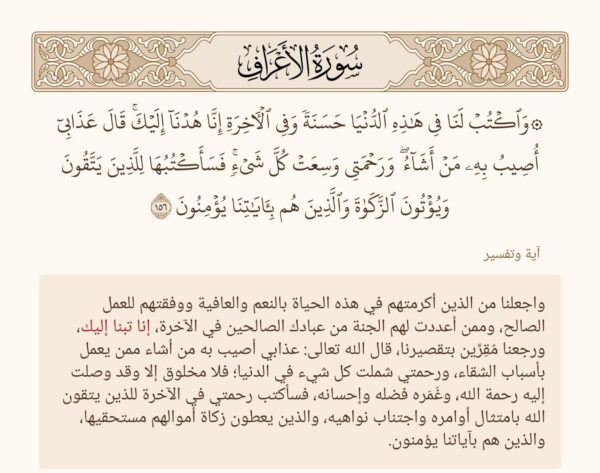 سُورَةُ الأَعْرَافِ
۞ وَٱكْتُبْ لَنَا فِي هَٰذِهِ ٱلدُّنْيَا حَسَنَةً وَفِي ٱلْآخِرَةِ إِنَّا هُدْنَآ إِلَيْكَۚ قَالَ عَذَابِيٓ
أُصِيبُ بِهِۦ مَنْ أَشَآءُۖ وَرَحْمَتِي وَسِعَتْ كُلَّ شَيْءٍۚ فَسَأَكْتُبُهَا لِلَّذِينَ يَتَّقُونَ
وَيُؤْتُونَ ٱلزَّكَوٰةَ وَٱلَّذِينَ هُم بِـَٔايَاتِنَا يُؤْمِنُونَ ١٥٦
آية وتفسير
واجعلنا من الذين أكرمتهم في هذه الحياة بالنعم والعافية ووفقتهم للعمل
الصالح، وممن أعددت لهم الجنة من عبادك الصالحين في الآخرة، إنا تبنا إليك،
ورجعنا مُقِرِّين بتقصيرنا، قال الله تعالى: عذابي أصيب به من أشاء ممن يعمل
بأسباب الشقاء، ورحمتي شملت كل شيء في الدنيا؛ فلا مخلوق إلا وقد وصلت
إليه رحمة الله، وغَمَره فضله وإحسانه، فسأكتب رحمتي في الآخرة للذين يتقون
الله بامتثال أوامره واجتناب نواهيه، والذين يعطون زكاة أموالهم مستحقيها،
والذين هم بآياتنا يؤمنون.